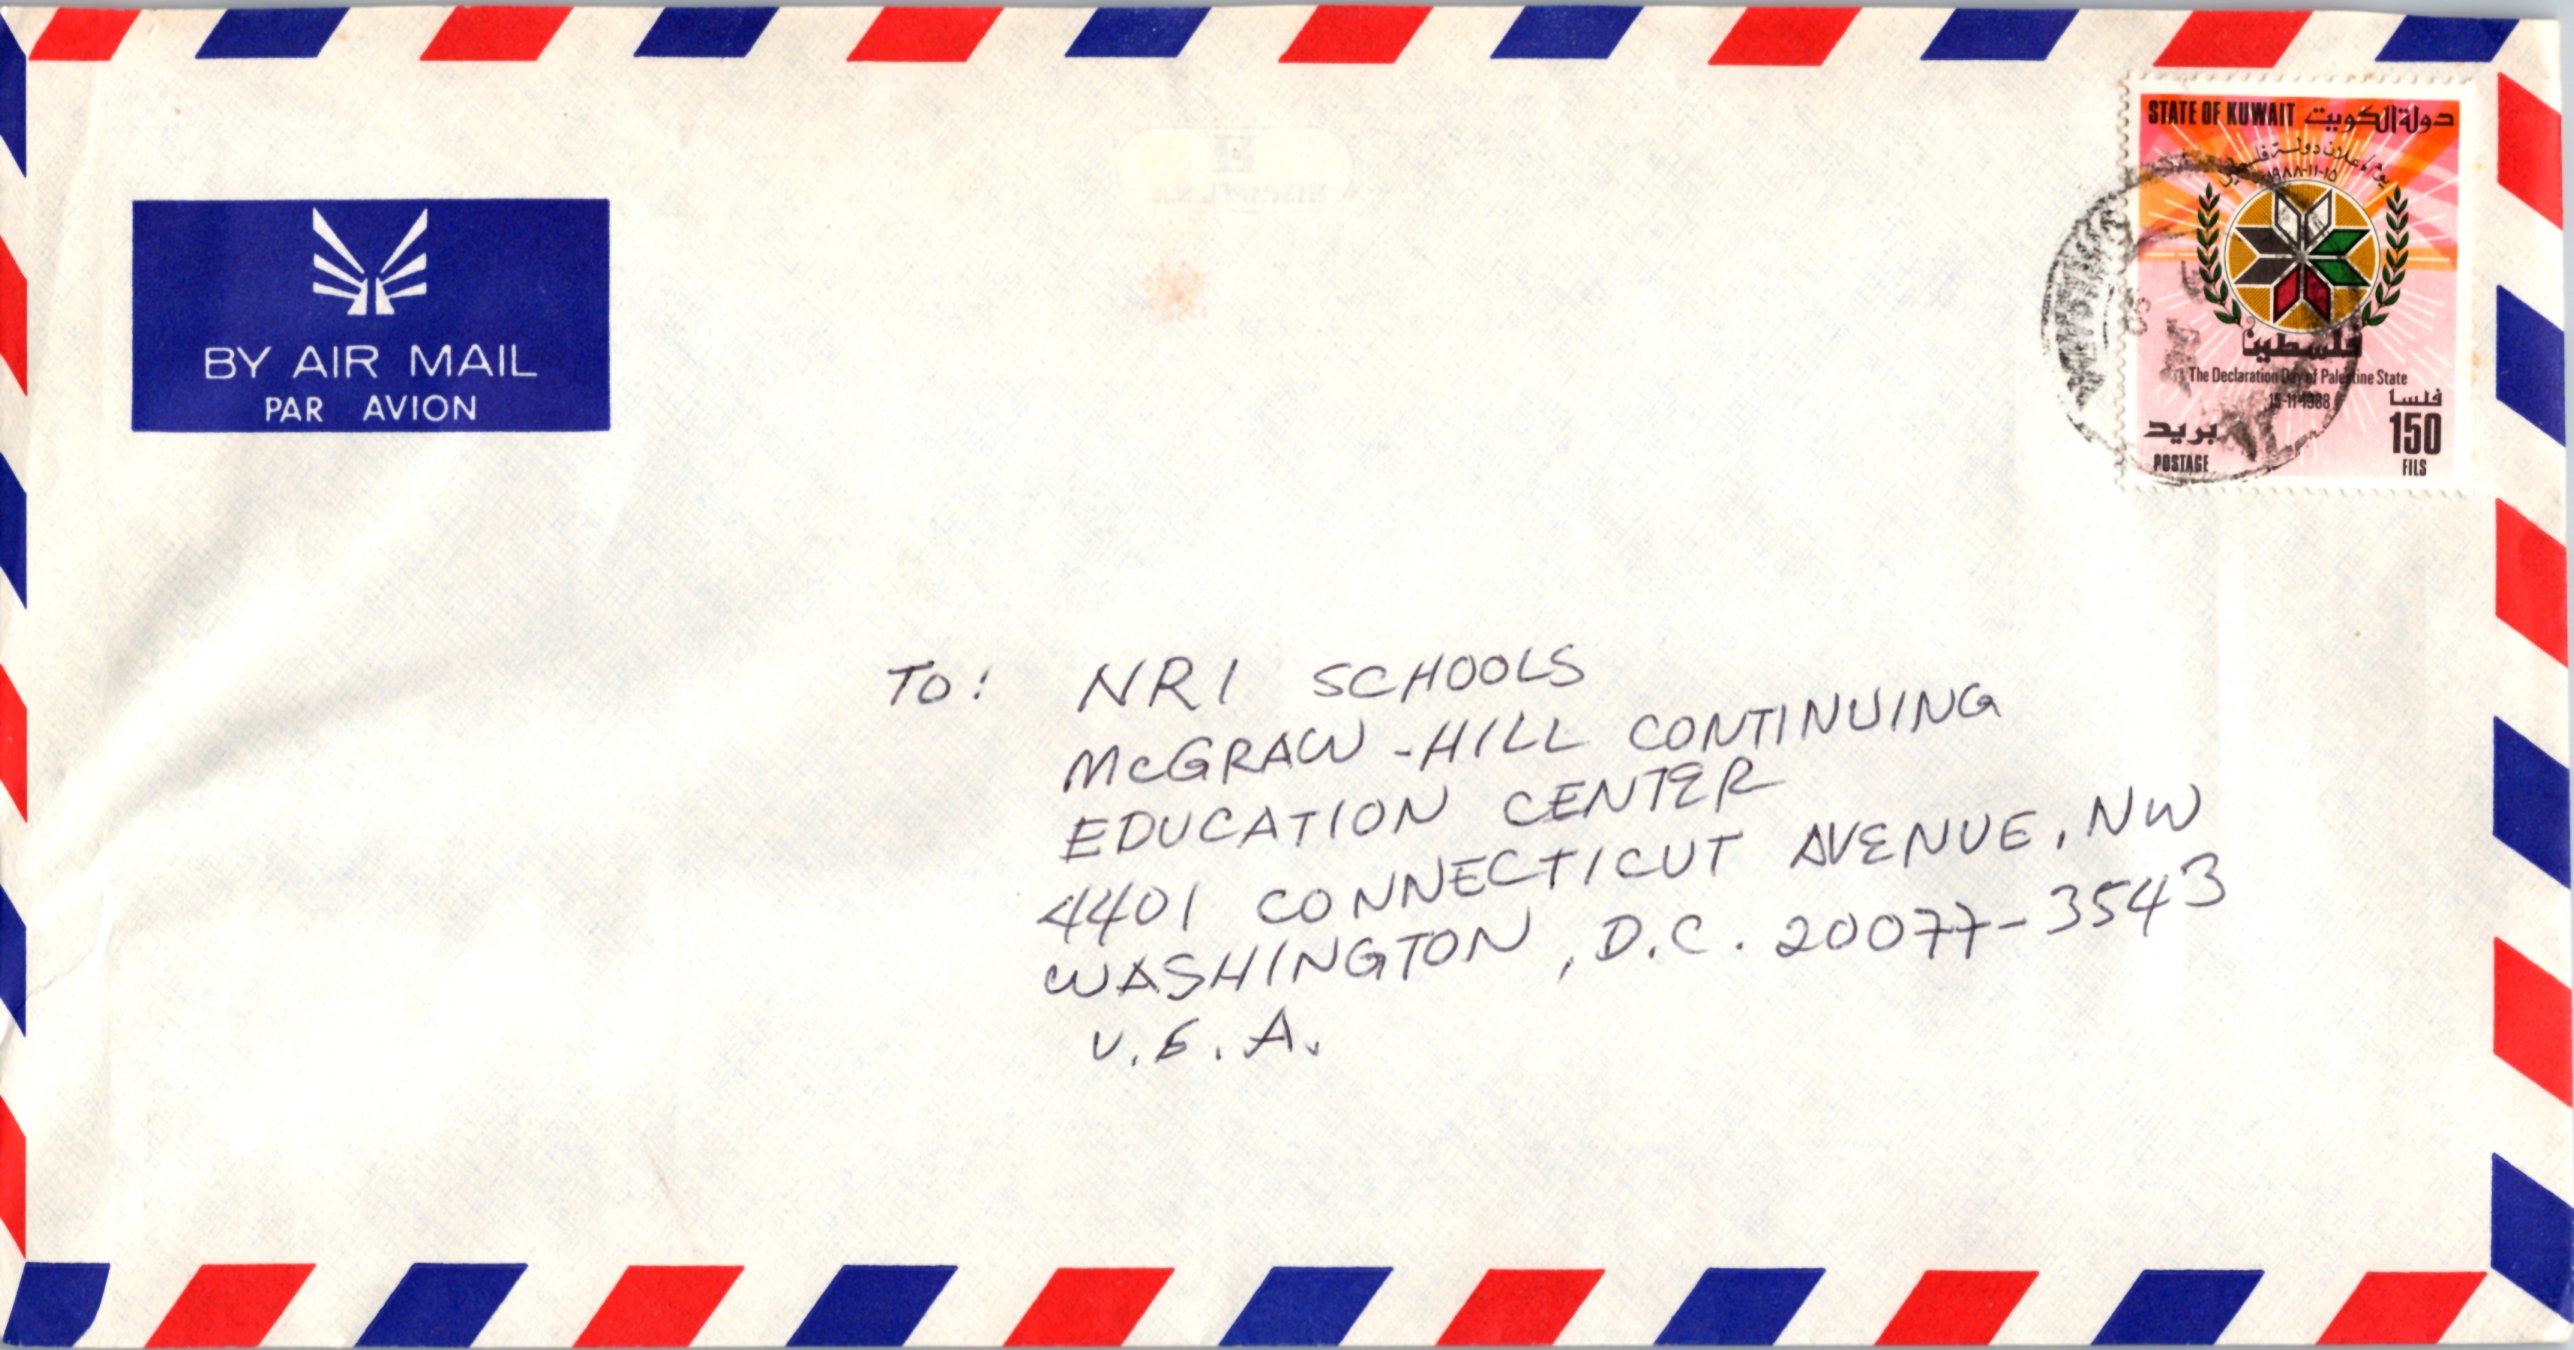 BY AIR MAIL
PAR AVION
STATE OF KUWAIT دولة الكويت
يوم إعلان دولة فلسطين
١٩٨٨-١١-١٥
فلسطين
The Declaration Day of Palestine State
15-11-1988
فلسا
150
FILS
بريد
POSTAGE
TO: NRI SCHOOLS
McGRAW-HILL CONTINUING
EDUCATION CENTER
4401 CONNECTICUT AVENUE, NW
WASHINGTON, D.C. 20077-3543
U.S.A.